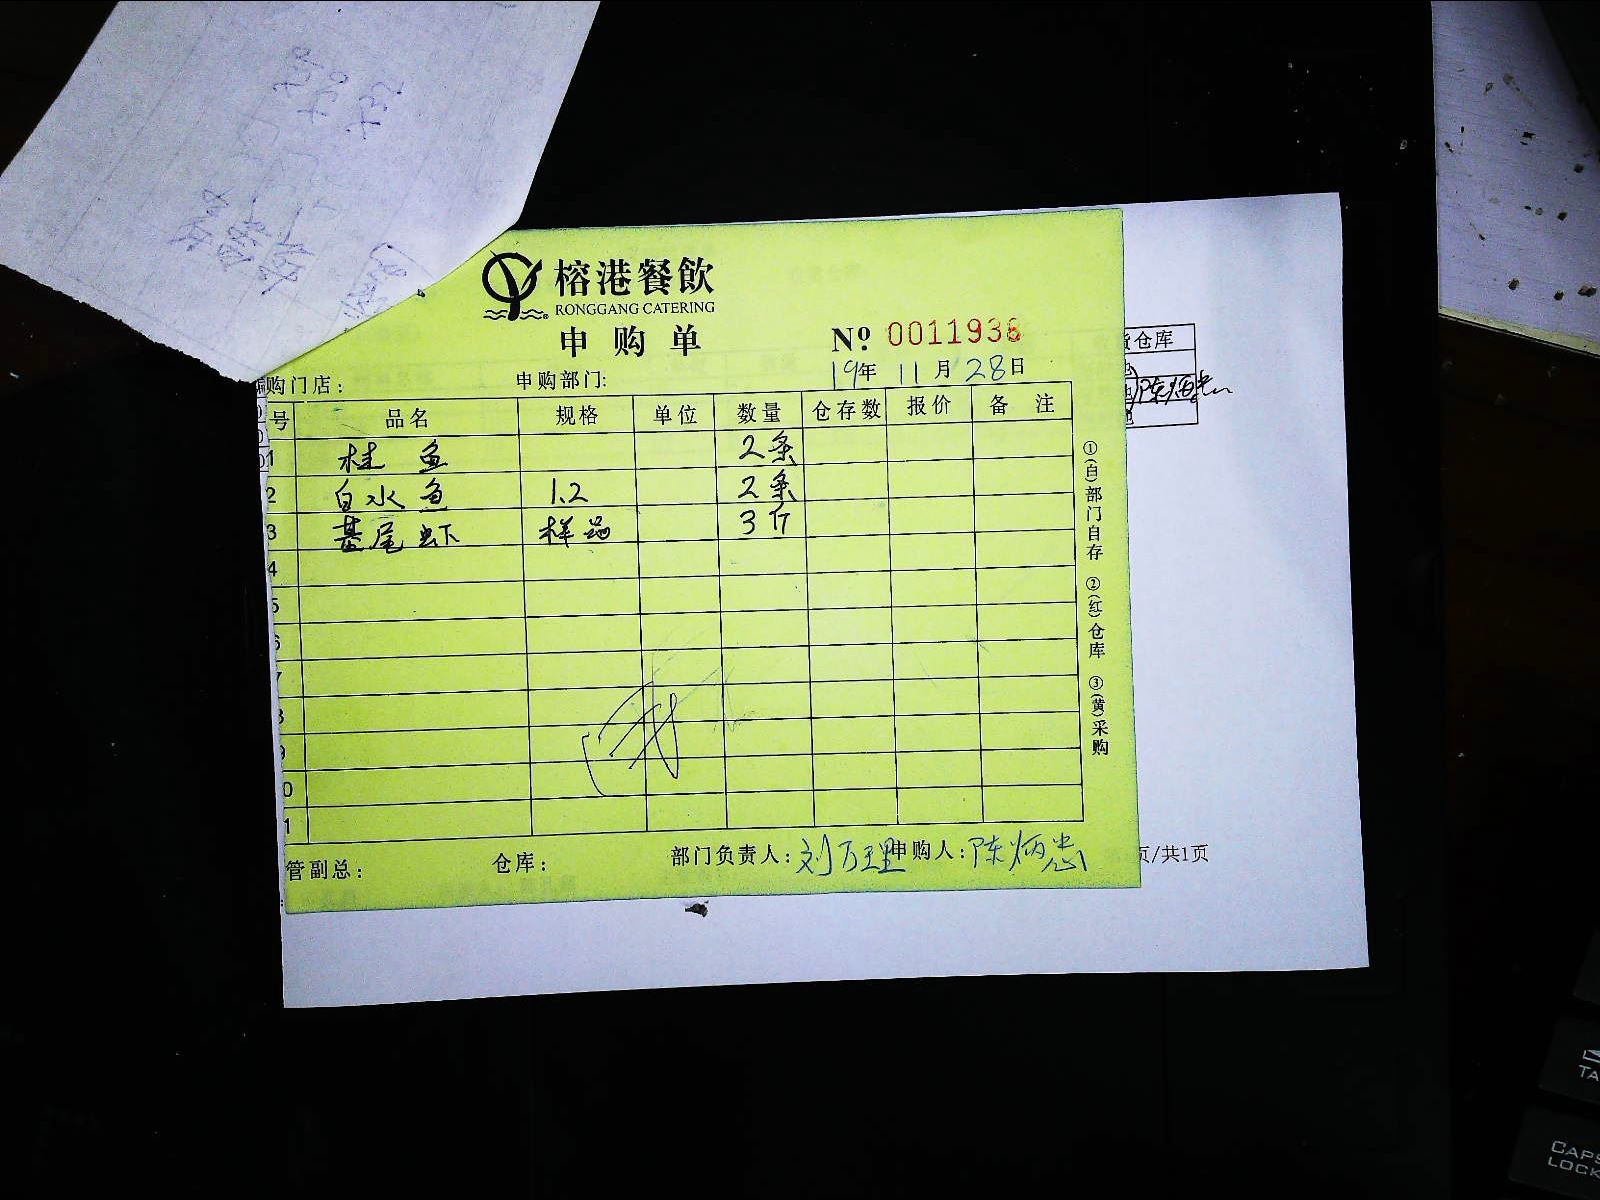 榕港餐飲
RONGGANG CATERING
申购单
№ 0011936
购门店: 申购部门: 19年 11月 28日
号 品名 规格 单位 数量 仓存数 报价 备注
1 桂鱼 2条
2 白水鱼 1.2 2条
3 基尾虾 样品 3斤
4
5
6
7
8
9
0
1
管副总: 仓库: 部门负责人: 刘万理 申购人: 陈炳忠
①(白)部门自存 ②(红)仓库 ③(黄)采购
仓库
页/共1页
TA
CAPS
LOCK